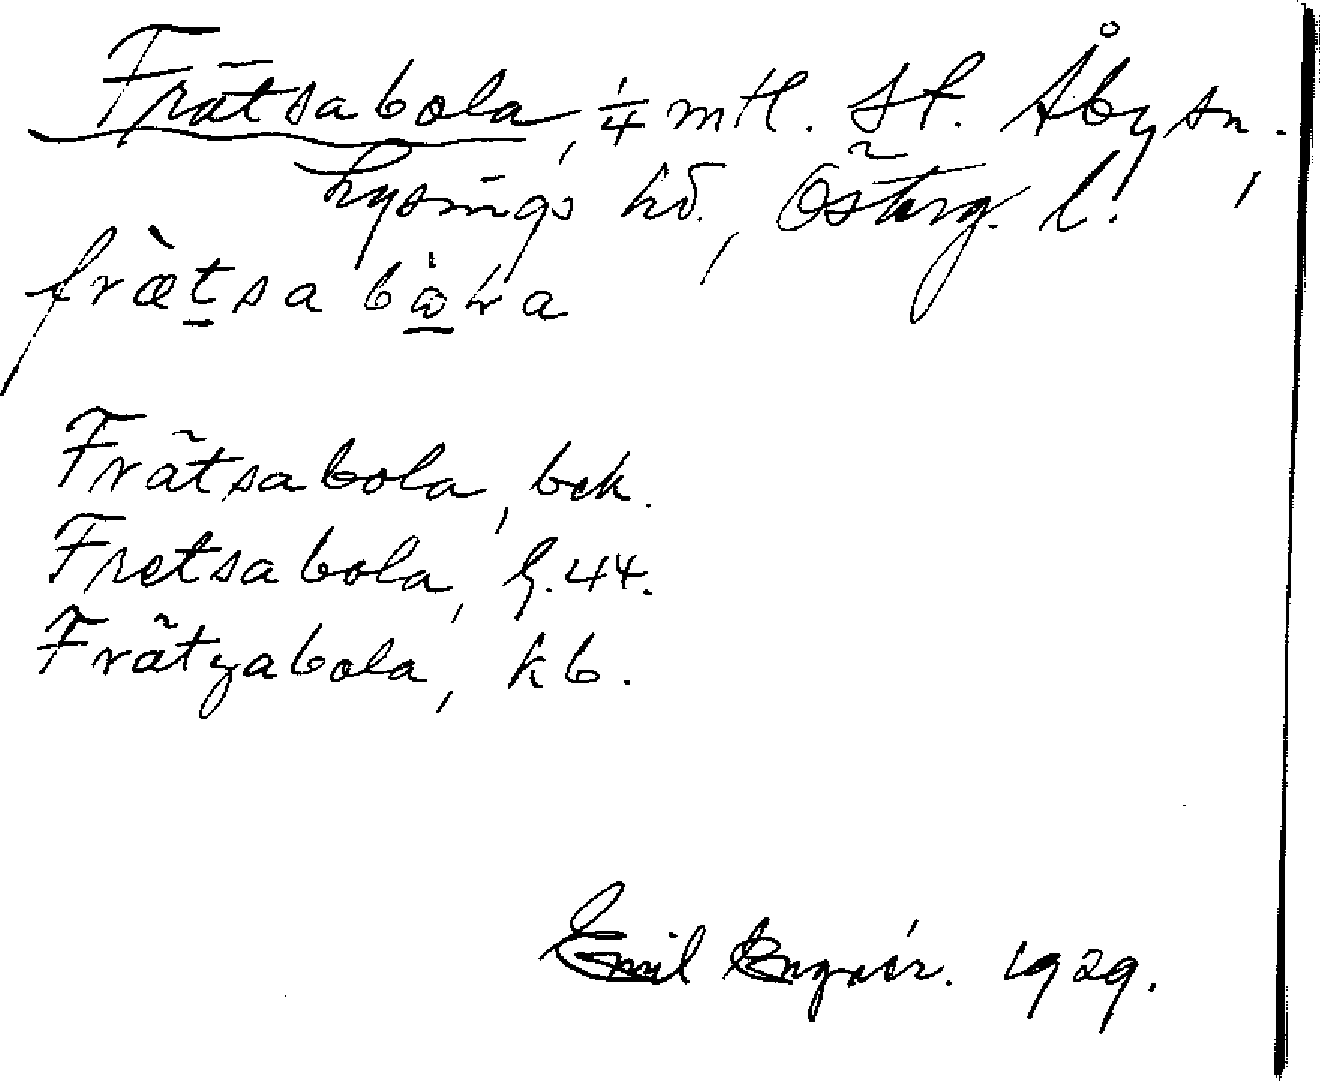 Frätsabola, 1/4 mtl. st. Åby sn.,
Lysings hd., Österg. l.
frætsa bàla
Frätsabola, bck.
Fretsabola, G. 44.
Frätzabola, kb.
Emil 1929.